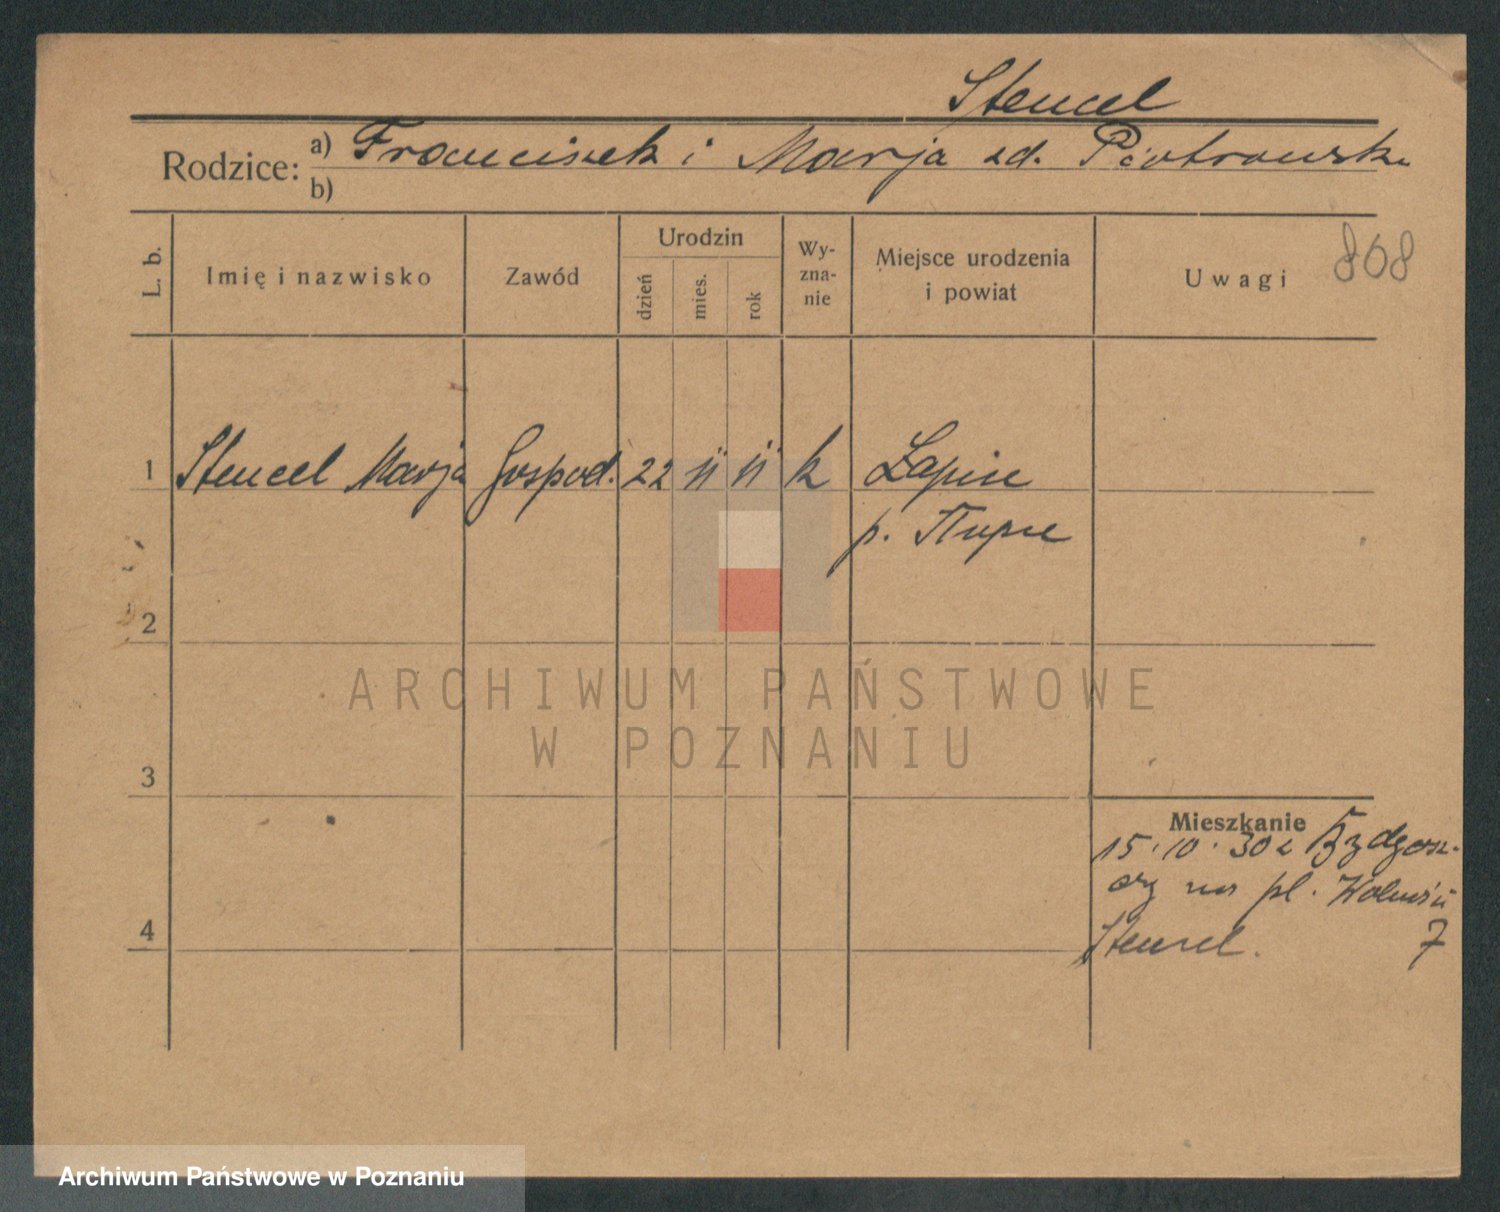 Stencel
Rodzice: a) Franciszek i Marja zd. Piotrowska
b)
L. b.
Imię i nazwisko
Zawód
Urodzin
dzień
mies.
rok
Wy-
zna-
nie
Miejsce urodzenia
i powiat
Uwagi
868
1 Stencel Marja Gospod. 22 11 11 k Łapin
p.
2
ARCHIWUM PAŃSTWOWE
W POZNANIU
3
Mieszkanie
15.10.30 z Bydgosz-
czy na pl. Wolności
4 Stencel. 7
Archiwum Państwowe w Poznaniu